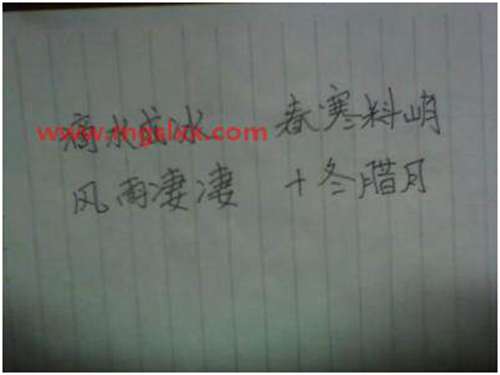 滴水成冰 春寒料峭
风雨凄凄 十冬腊月